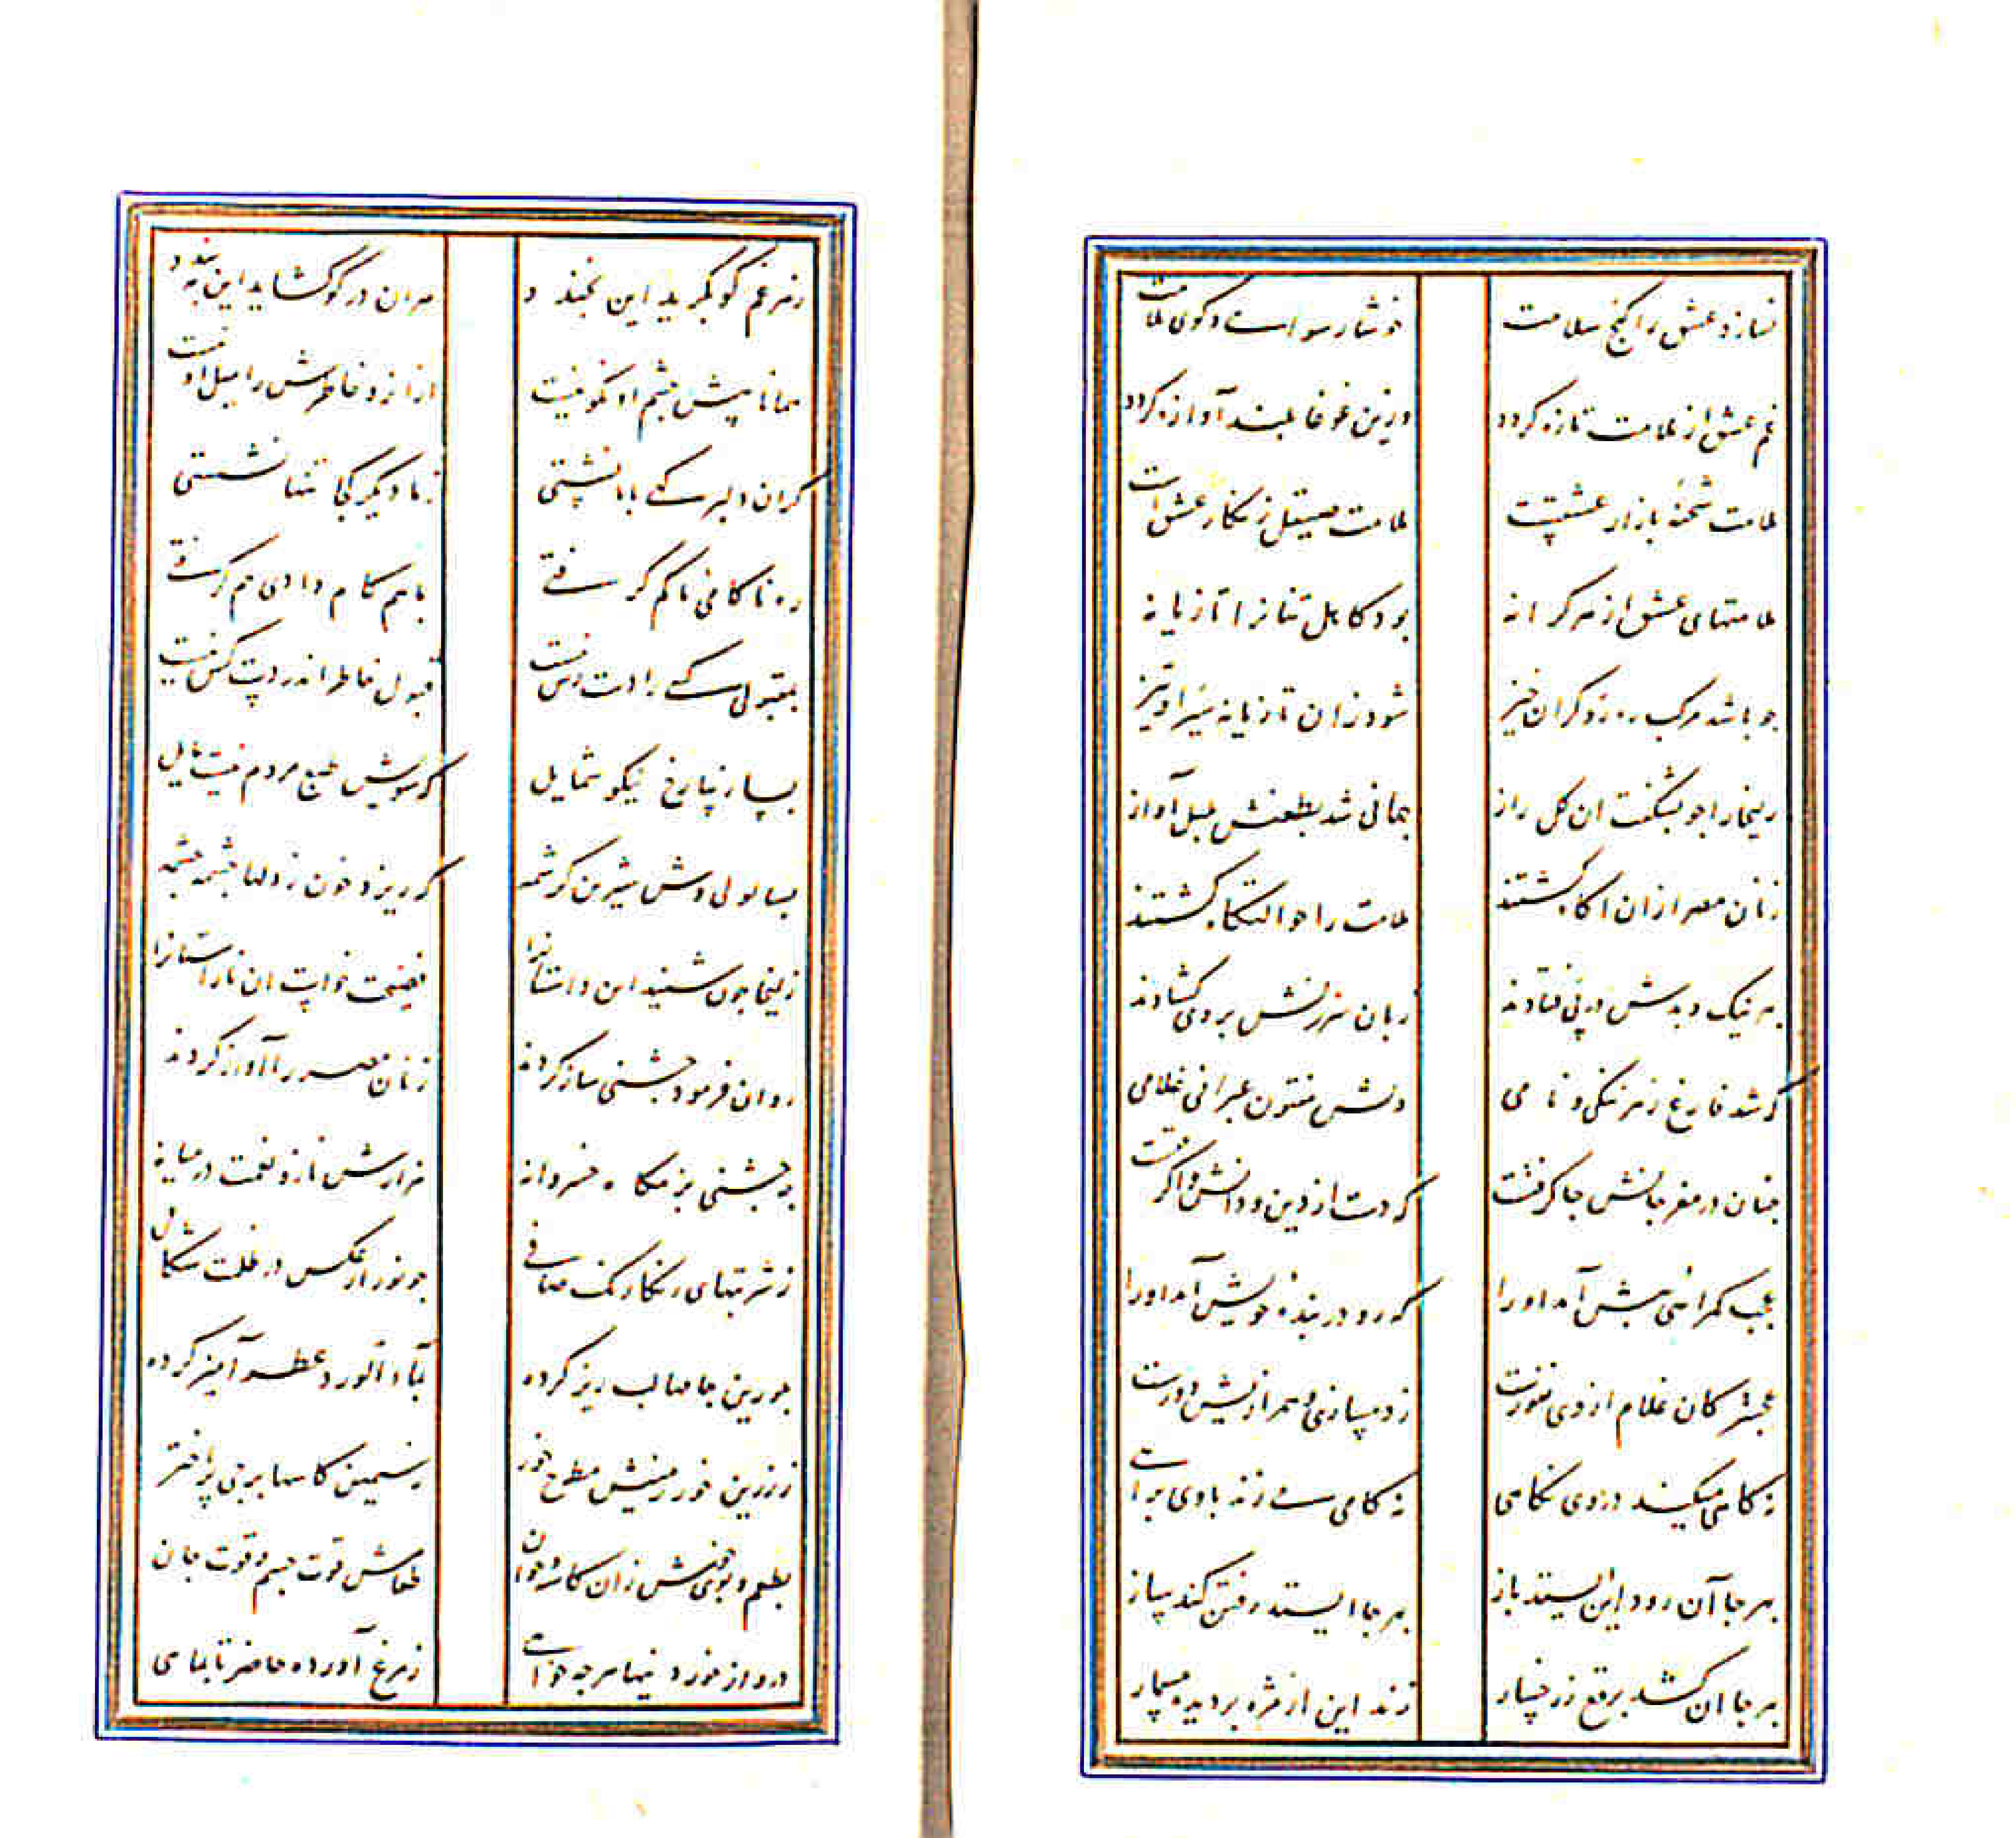 نسازد عشق را کنج سلامت خوشا رسوایی و کوی ملامت
غم عشق از ملامت تازه گردد وزین غوغا بلند آوازه گردد
ملامت شحنهٔ بازار عشقست ملامت صیقل زنگار عشق است
ملامتهای عشق از هر کرانه بود کاهل تنانرا تازیانه
چو باشد مرکب رهرو گران خیز شود زان تازیانه سیر او تیز
زلیخا را چو بشکفت آن گل راز جهانی شد بطعنش بلبل آواز
زنان مصر ازان آگاه گشتند ملامت را حوالتگاه گشتند
به نیک و بدش در پی فتادند زبان سرزنش بر وی گشادند
که شد فارغ ز هر ننگی و نامی دلش مفتون عبرانی غلامی
چنان در مغز جانش جا گرفت که دست از دین و دانش وا گرفت
عجب گمراهی پیش آمد او را که رو در بندهٔ خویش آمد او را
عجبتر کان غلام از وی نفورست ز دمسازی و همرازیش دورست
نه گاهی میکند در وی نگاهی نه گامی می زند با وی براهی
بهر جا آن رود این ایستد باز بهر جا ایستد رفتن کند ساز
بهر جا آن کشد برقع ز رخسار زند این از مژه بر دیده مسمار
ز هر غم کو بگرید این بخندد هران در کو گشاید این ببندد
همانا پیش چشم او نکو نیست ازانرو خاطرش را میل او نیست
گر آن دلبر گهی با ما نشستی ز ما دیگر کجا تنها نشستی
ره ناکامی ما کم گرفتی بما هم کام دادی هم گرفتی
بمقبولی کسی را دست رس نیست قبول خاطر اندر دست کس نیست
بسا زیبا رخ نیکو شمایل که سویش طبع مردم نیست مایل
بسا لولی وش شیرین کرشمه که ریزد خون ز دلها چشمه چشمه
زلیخا چون شنید این داستانرا فضیحت خواست آن ناراستانرا
روان فرمود جشنی ساز کردند زنان مصر را آواز کردند
چه جشنی بزمگاه خسروانه هزارش ناز و نعمت در میانه
ز شربتهای رنگارنگ صافی چو نور از عکس در ظلمت شکافی
بلورین جامها لبریز کرده بماء الورد عطر آمیز کرده
ز زرین خور زمینش مطرح خور ز سیمین کاسها برجی پر اختر
بطعم و بوی خوش زان کاسه و خوان طعامش قوت جسم و قوت جان
درو از خوردنیها هر چه خواهی ز مرغ آورده حاضر تا بماهی